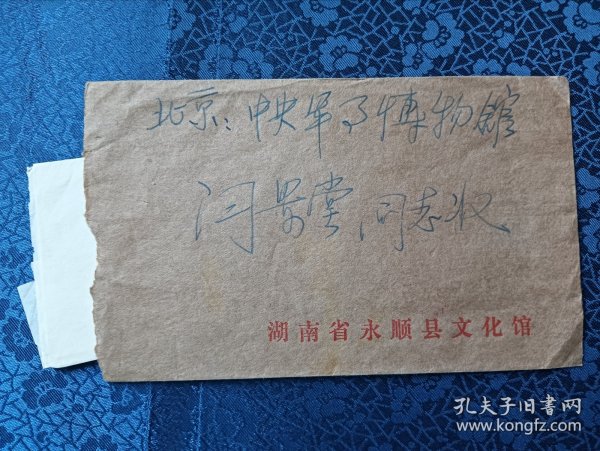 北京：中央军事博物馆
闫景堂同志收
湖南省永顺县文化馆
孔夫子旧书网
www.kongfz.com